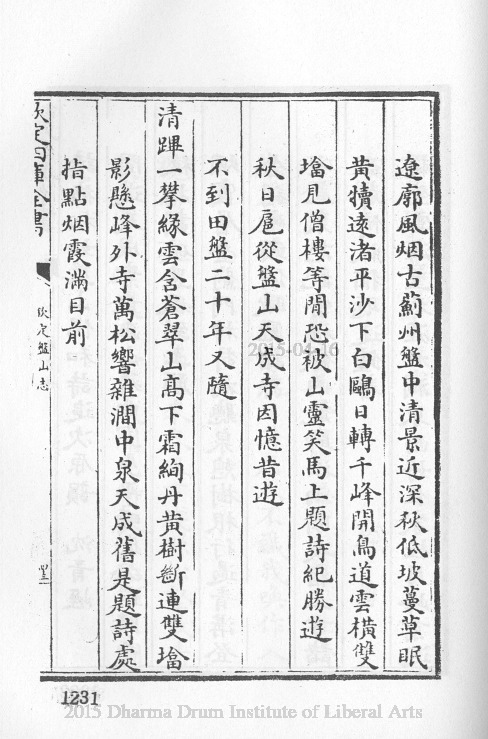 遼廓風烟古薊州盤中清景近深秋低坡蔓草眠
黄犢遠渚平沙下白鷗日轉千峰開鳥道雲橫雙
㙮見僧樓等閒恐被山靈笑馬上題詩紀勝遊
秋日扈從盤山天成寺因憶昔遊
不到田盤二十年又隨
清蹕一攀緣雲含蒼翠山髙下霜絢丹黄樹斷連雙㙮
影懸峰外寺萬松響雜澗中泉天成舊是題詩處
指點烟霞滿目前
欽定四庫全書
欽定盤山志
2015-04-16
1231
2015 Dharma Drum Institute of Liberal Arts